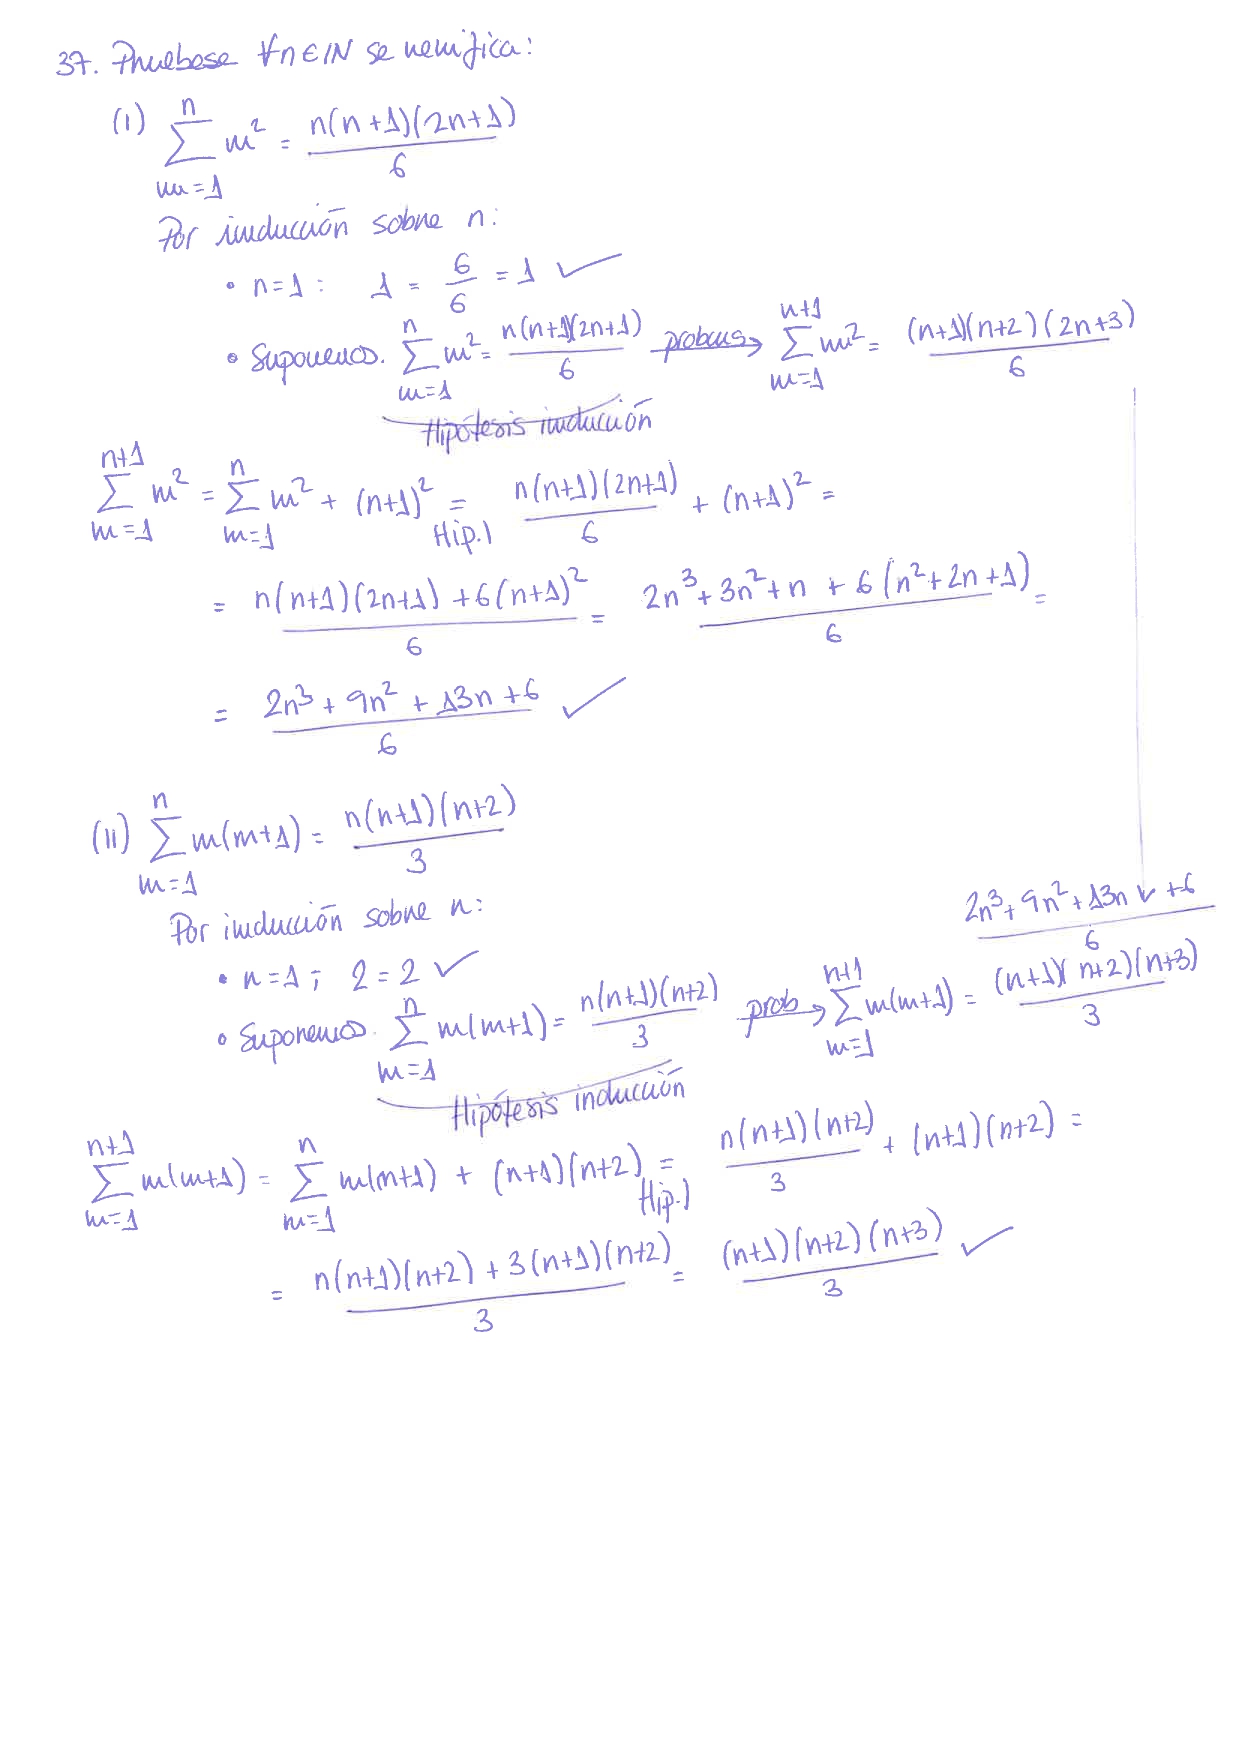 37. Pruebese ∀n∈ℕ se verifica:
(I) ∑_{m=1}^{n} m² = n(n+1)(2n+1)/6
Por inducción sobre n:
• n=1: 1 = 6/6 = 1 ✓
• Suponemos. ∑_{m=1}^{n} m² = n(n+1)(2n+1)/6 probems → ∑_{m=1}^{n+1} m² = (n+1)(n+2)(2n+3)/6
Hipótesis inducción
∑_{m=1}^{n+1} m² = ∑_{m=1}^{n} m² + (n+1)² = Hip.I n(n+1)(2n+1)/6 + (n+1)² =
= (n(n+1)(2n+1) + 6(n+1)²)/6 = (2n³+3n²+n + 6(n²+2n+1))/6 =
= (2n³ + 9n² + 13n + 6)/6 ✓
(II) ∑_{m=1}^{n} m(m+1) = n(n+1)(n+2)/3
(2n³+9n²+13n+6)/6
Por inducción sobre n:
• n=1; 2=2 ✓
• Suponemos. ∑_{m=1}^{n} m(m+1) = n(n+1)(n+2)/3 prob → ∑_{m=1}^{n+1} m(m+1) = (n+1)(n+2)(n+3)/3
Hipótesis inducción
∑_{m=1}^{n+1} m(m+1) = ∑_{m=1}^{n} m(m+1) + (n+1)(n+2) = Hip.I n(n+1)(n+2)/3 + (n+1)(n+2) =
= (n(n+1)(n+2) + 3(n+1)(n+2))/3 = (n+1)(n+2)(n+3)/3 ✓